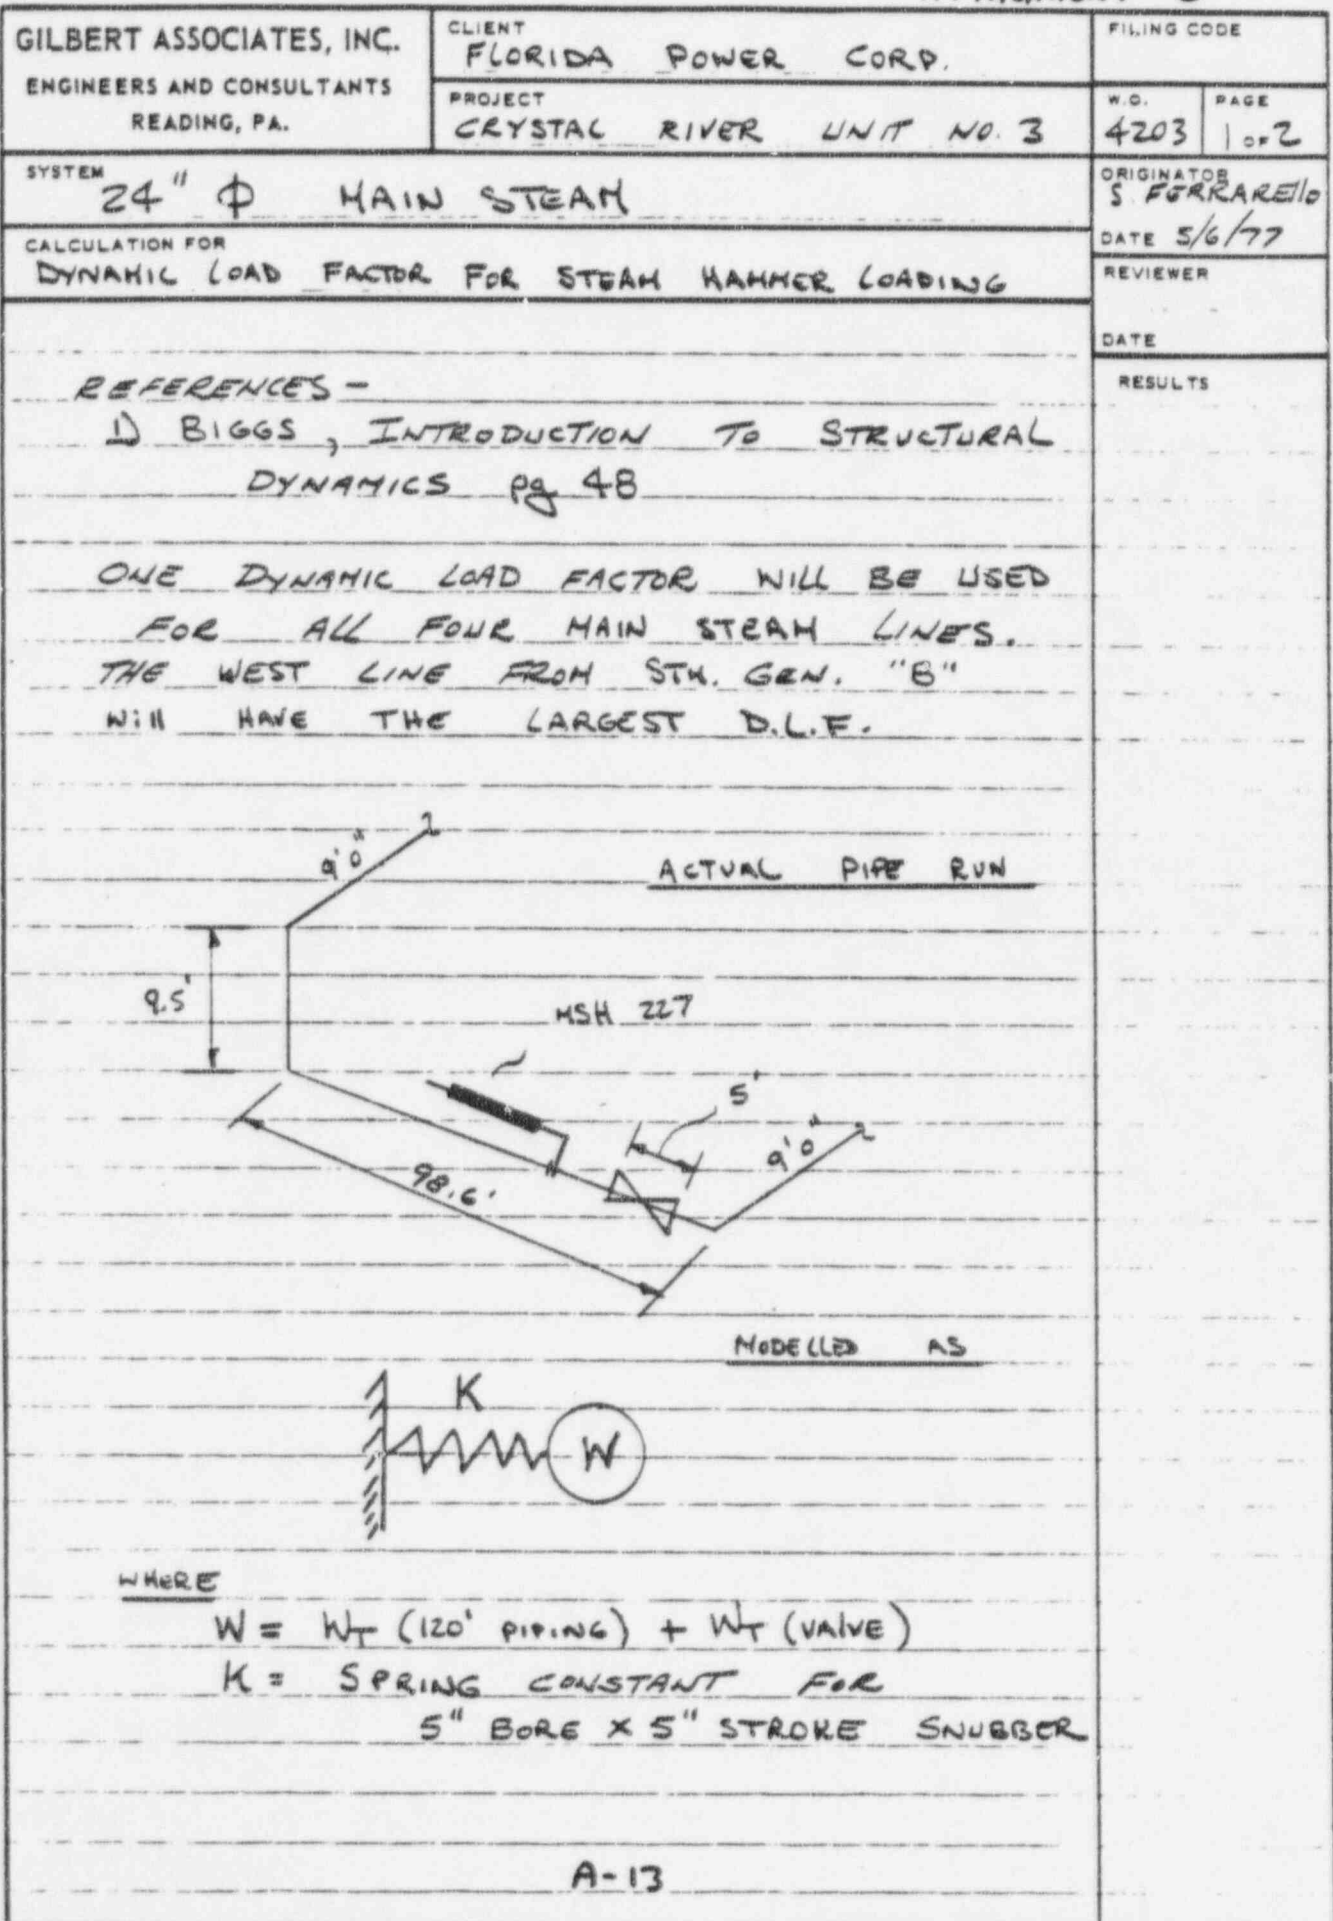 GILBERT ASSOCIATES, INC.
ENGINEERS AND CONSULTANTS
READING, PA.
CLIENT
FLORIDA POWER CORP.
PROJECT
CRYSTAL RIVER UNIT NO. 3
FILING CODE
W.O.
4203
PAGE
1 OF 2
SYSTEM
24" Φ MAIN STEAM
ORIGINATOR
S. FERRARELLO
DATE 5/6/77
CALCULATION FOR
DYNAMIC LOAD FACTOR FOR STEAM HAMMER LOADING
REVIEWER
DATE
RESULTS
REFERENCES -
1) BIGGS, INTRODUCTION TO STRUCTURAL
DYNAMICS pg 48
ONE DYNAMIC LOAD FACTOR WILL BE USED
FOR ALL FOUR MAIN STEAM LINES.
THE WEST LINE FROM STM. GEN. "B"
WILL HAVE THE LARGEST D.L.F.
9'0"
ACTUAL PIPE RUN
9.5'
MSH 227
5'
9'0"
98.6'
MODELLED AS
K
W
WHERE
W = WT (120' PIPING) + WT (VALVE)
K = SPRING CONSTANT FOR
5" BORE X 5" STROKE SNUBBER
A-13